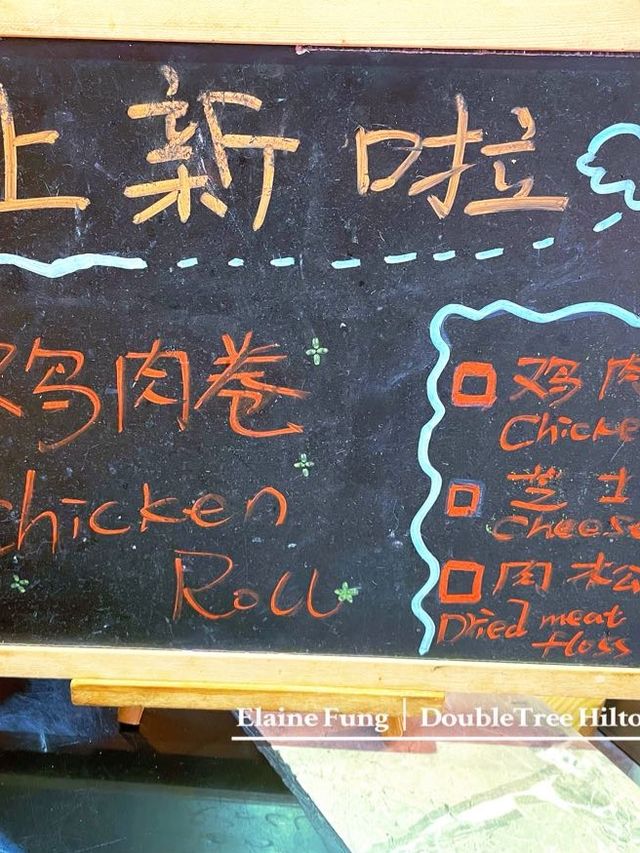 上新啦
鸡肉卷
Chicken
Roll
鸡肉
Chicke
芝士
Cheese
肉松
Dried meat
floss
Elaine Fung | DoubleTree Hilto